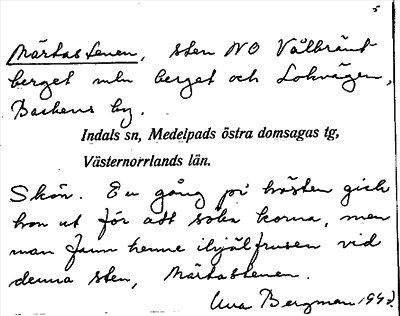 Märtastenen, sten NO Vålbränt-
berget mln berget och Lohvägen,
Backens by.
Indals sn, Medelpads östra domsagas tg,
Västernorrlands län.
Skön. En gång på hösten gick
hon ut för att söka korna, men
man fann henne ihjälfrusen vid
denna sten, Märtastenen.
Bergman